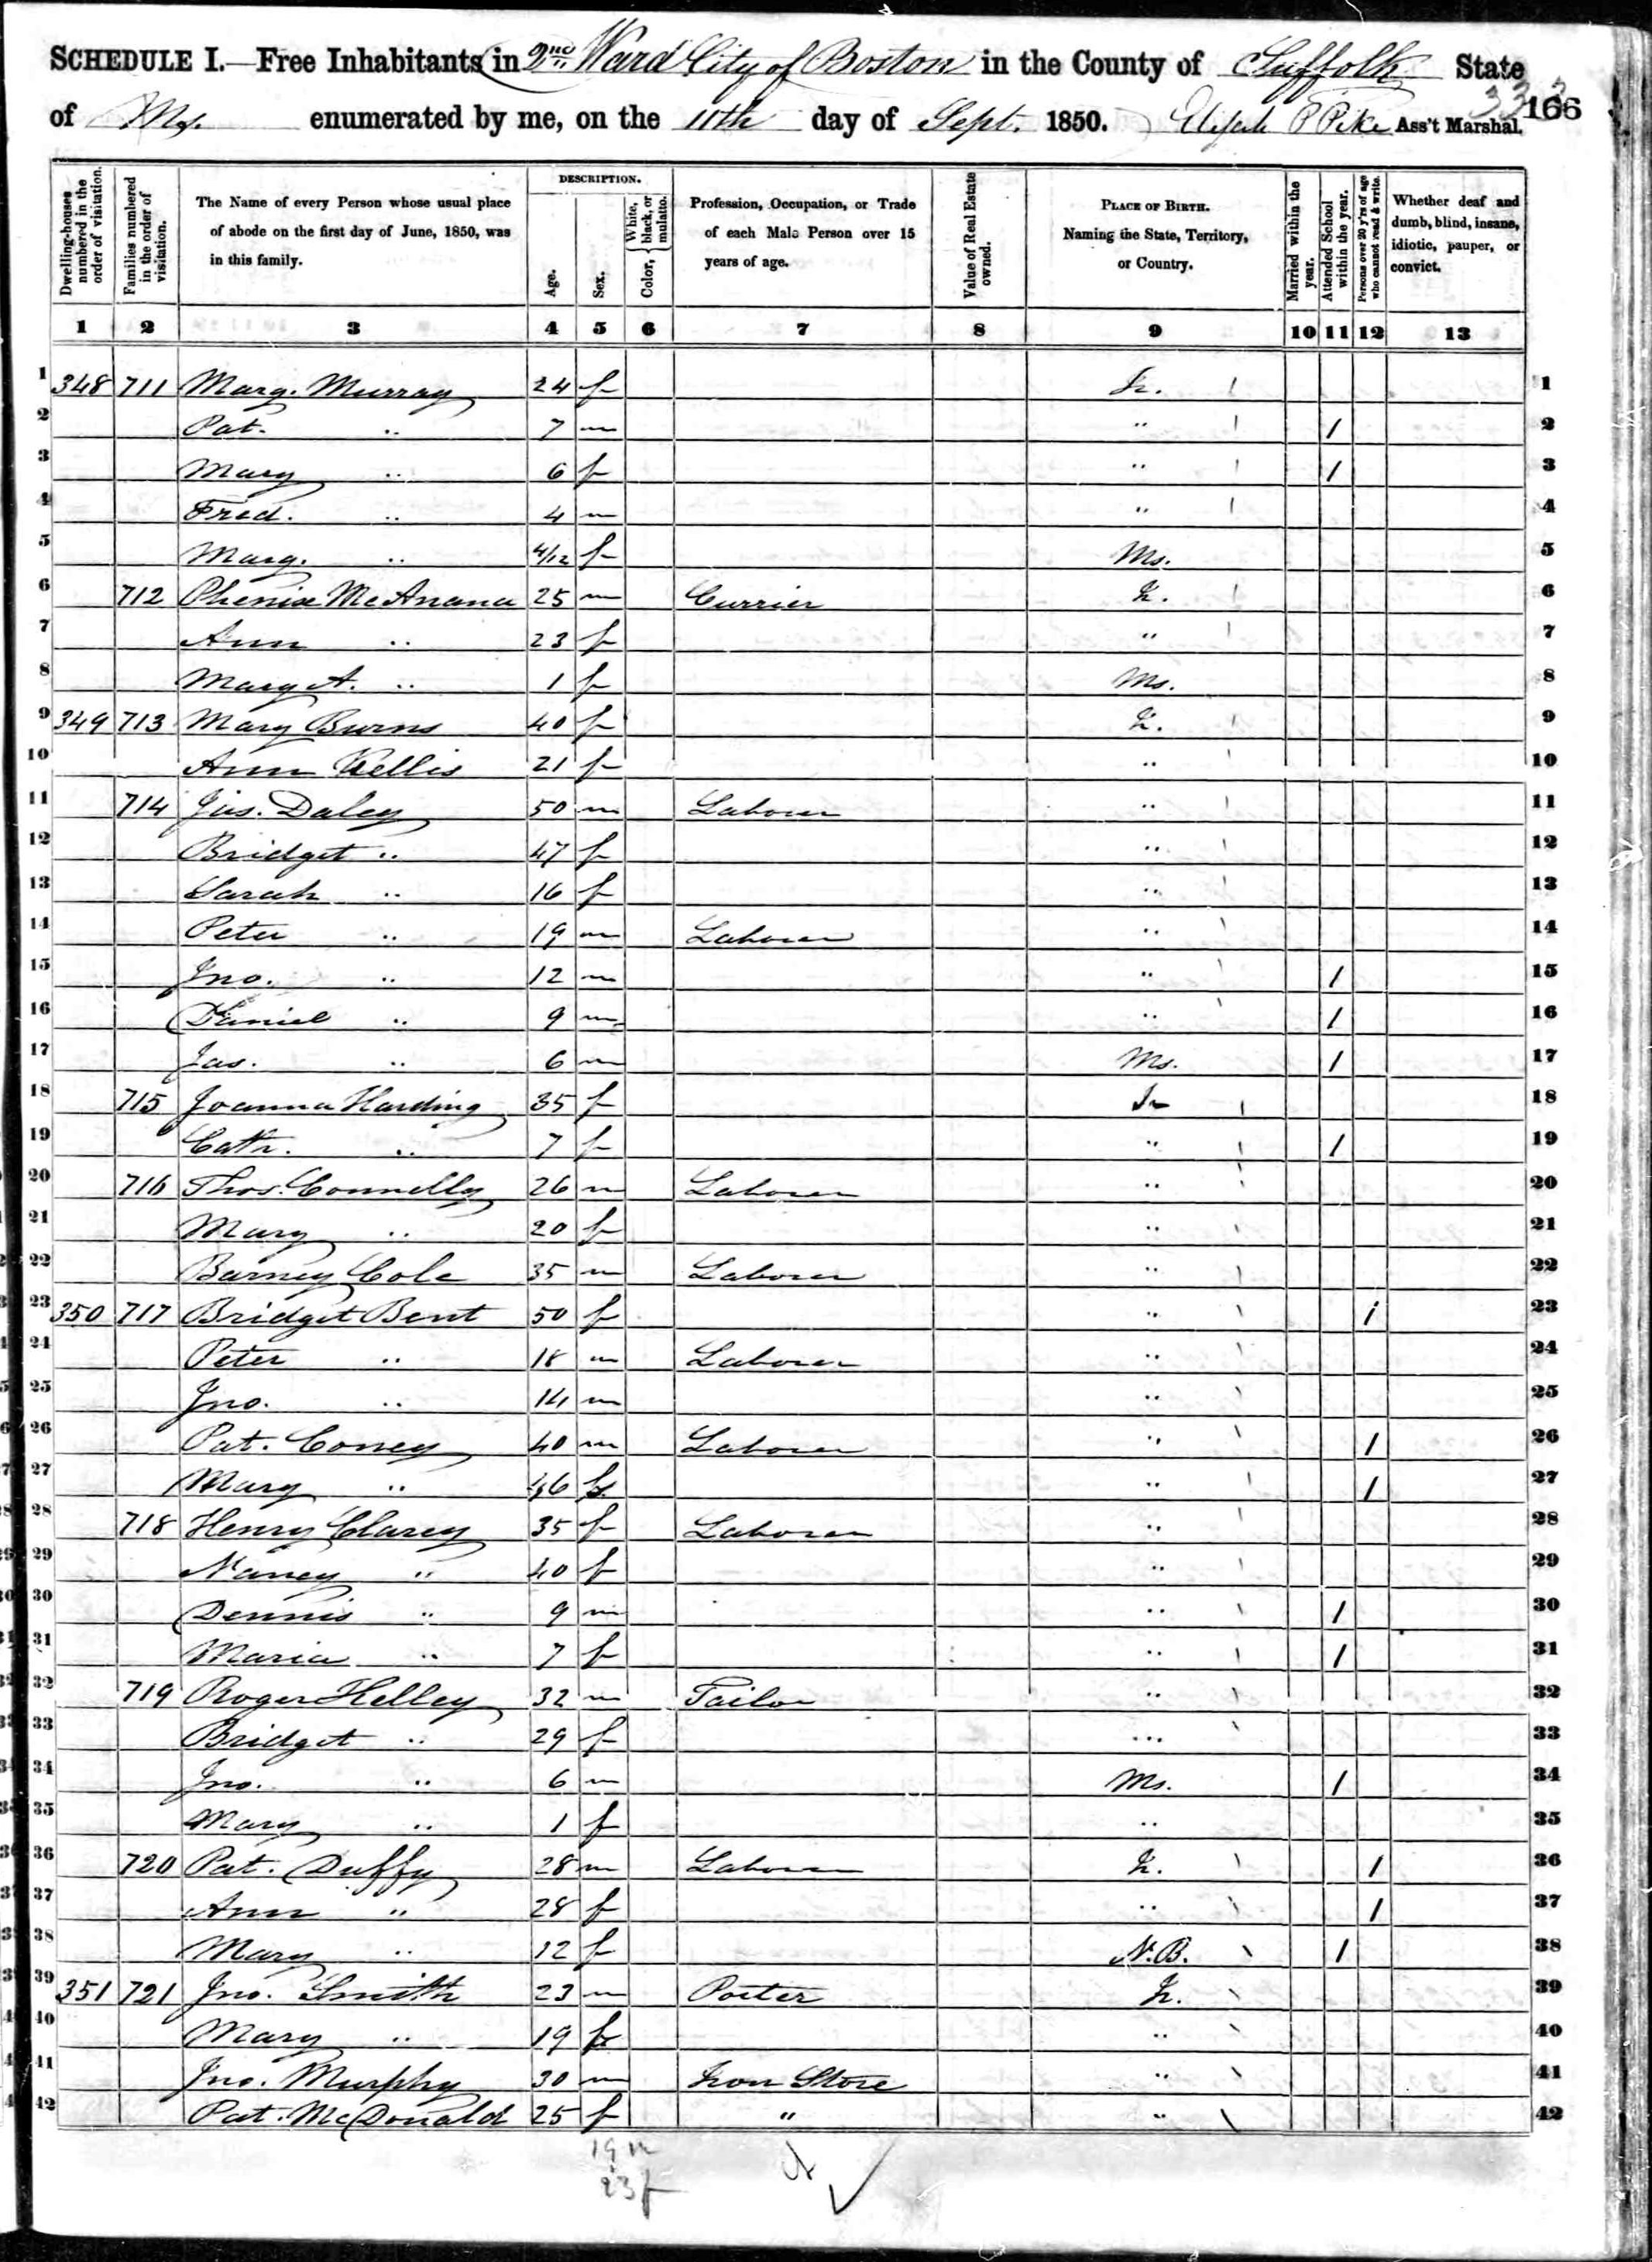 SCHEDULE I.—Free Inhabitants in 2nd Ward City of Boston in the County of Suffolk State
of Ms. enumerated by me, on the 11th day of Sept. 1850. Elijah P Pike Ass't Marshal. 166
DESCRIPTION.
Dwelling-houses numbered in the order of visitation.
Families numbered in the order of visitation.
The Name of every Person whose usual place of abode on the first day of June, 1850, was in this family.
Age.
Sex.
Color, { White, black, or mulatto.
Profession, Occupation, or Trade of each Male Person over 15 years of age.
Value of Real Estate owned.
PLACE OF BIRTH. Naming the State, Territory, or Country.
Married within the year.
Attended School within the year.
Persons over 20 y'rs of age who cannot read & write.
Whether deaf and dumb, blind, insane, idiotic, pauper, or convict.
1 2 3 4 5 6 7 8 9 10 11 12 13
1 348 711 Marg. Murray 24 f Ir. 1
2 Pat. " 7 m " / 2
3 Mary " 6 f " / 3
4 Fred. " 4 m " 4
5 Marg. " 4/12 f Ms. 5
6 712 Phenix McAnana 25 m Currier Ir. 6
7 Ann " 23 f " 7
8 Mary A. " 1 f Ms. 8
9 349 713 Mary Burns 40 f Ir. 9
10 Ann Kellis 21 f " 10
11 714 Jas. Daley 50 m Laborer " 11
12 Bridget " 47 f " 12
13 Sarah " 16 f " 13
14 Peter " 19 m Laborer " 14
15 Jno. " 12 m " / 15
16 Daniel " 9 m " / 16
17 Jas. " 6 m Ms. / 17
18 715 Joanna Harding 35 f Ir 18
19 Cath. " 7 f " / 19
20 716 Thos. Connelly 26 m Laborer " 20
21 Mary " 20 f " 21
22 Barney Cole 35 m Laborer " 22
23 350 717 Bridget Bent 50 f " / 23
24 Peter " 18 m Laborer " 24
25 Jno. " 14 m " 25
26 Pat. Coney 40 m Laborer " / 26
27 Mary " 46 f " / 27
28 718 Henry Clarey 35 f Laborer " 28
29 Nancy " 40 f " 29
30 Dennis " 9 m " / 30
31 Maria " 7 f " / 31
32 719 Roger Helley 32 m Tailor " 32
33 Bridget " 29 f " 33
34 Jno. " 6 m Ms. / 34
35 Mary " 1 f " 35
36 720 Pat. Duffy 28 m Laborer Ir. / 36
37 Ann " 28 f " / 37
38 Mary " 12 f N.B. / 38
39 351 721 Jno. Smith 23 m Porter Ir. 39
40 Mary " 19 f " 40
41 Jno. Murphy 30 m Iron Store " 41
42 Pat. McDonald 25 f " " 42
19 m
23 f